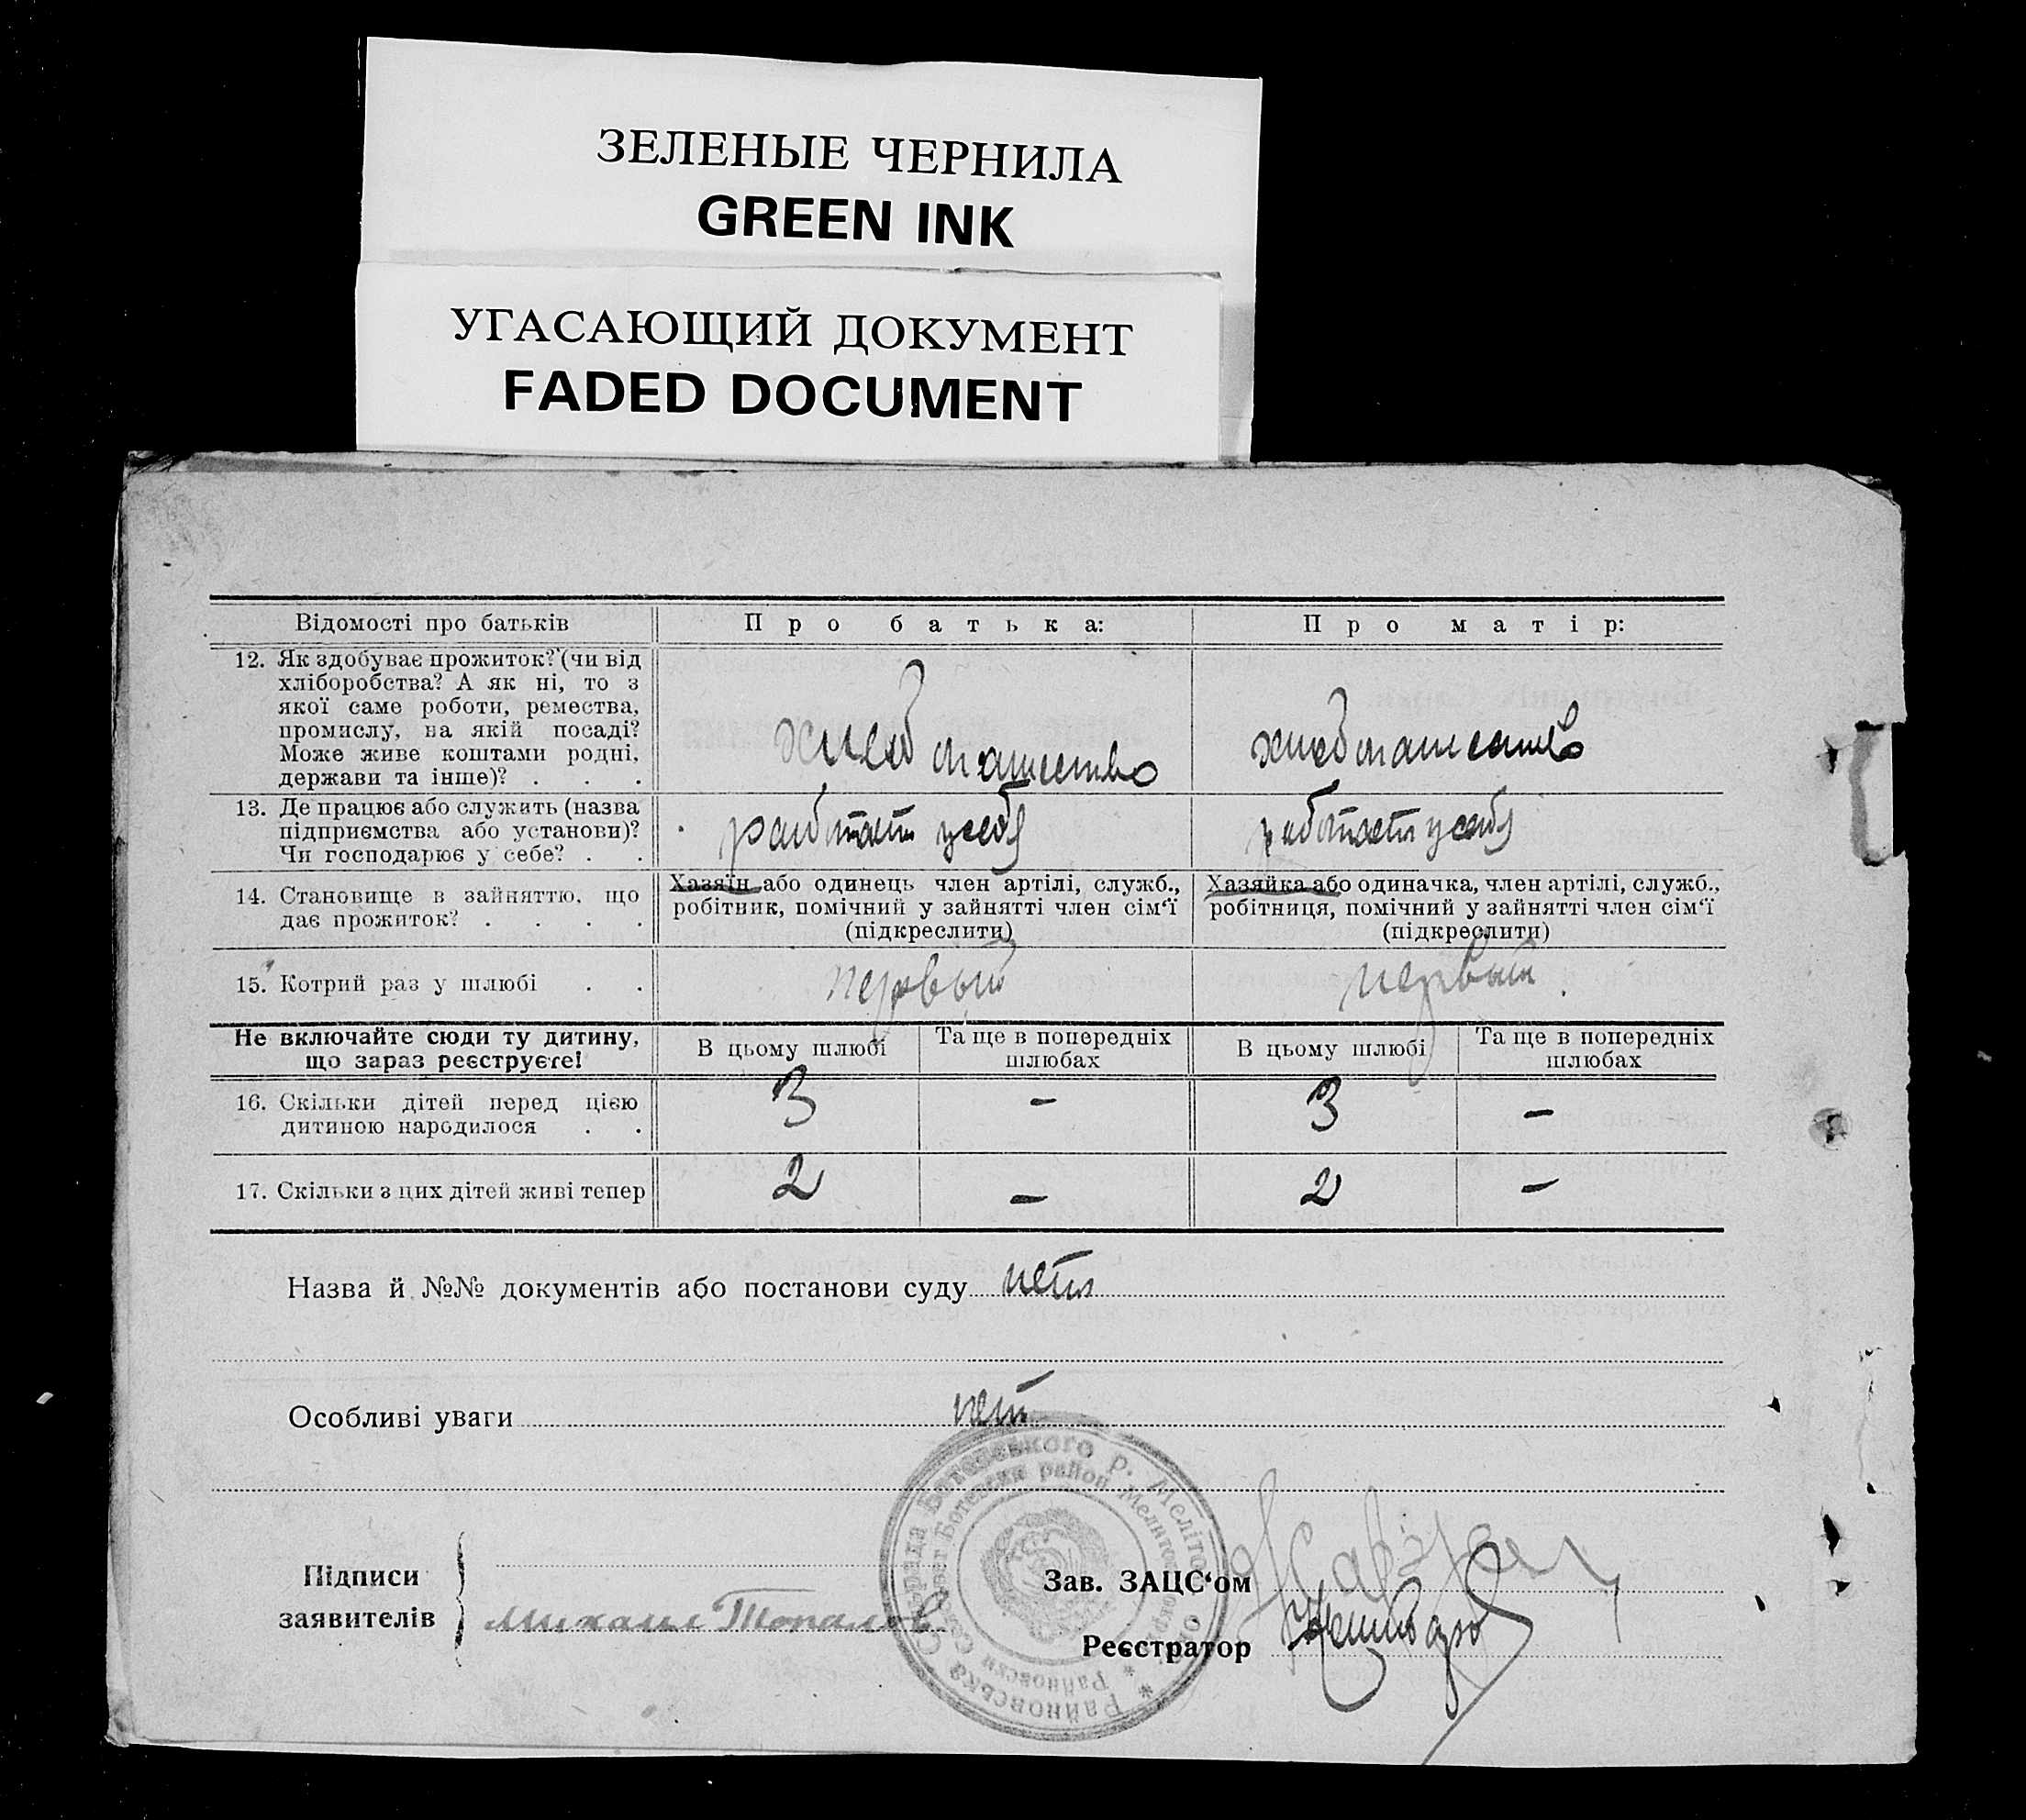 ЗЕЛЕНЫЕ ЧЕРНИЛА
GREEN INK
УГАСАЮЩИЙ ДОКУМЕНТ
FADED DOCUMENT
Відомості про батьків
Про батька:
Про матір:
12. Як здобуває прожиток? (чи від
хліборобства? А як ні, то з
якої саме роботи, ремества,
промислу, на якій посаді?
Може живе коштами родні,
держави та інше)? . . .
хлебопашество
хлебопашество
13. Де працює або служить (назва
підприємства або установи)?
Чи господарює у себе? . .
работает у себя
работает у себя
14. Становище в зайняттю, що
дає прожиток? . . . .
Хазяїн або одинець член артілі, служб.,
робітник, помічний у зайнятті член сім‘ї
(підкреслити)
Хазяйка або одиначка, член артілі, служб.,
робітниця, помічний у зайнятті член сім‘ї
(підкреслити)
15. Котрий раз у шлюбі . .
первый
первый
Не включайте сюди ту дитину,
що зараз реєструєте!
В цьому шлюбі
Та ще в попередніх
шлюбах
В цьому шлюбі
Та ще в попередніх
шлюбах
16. Скільки дітей перед цією
дитиною народилося . .
3 – 3 –
17. Скільки з цих дітей живі тепер
2 – 2 –
Назва й №№ документів або постанови суду нет
Особливі уваги нет
Підписи
заявителів
Михаил Топалов
Зав. ЗАЦС‘ом
Реєстратор
Райновська Сільрада Ботевського р. Меліто
Райновски Ботевски район Мелитоп окръг